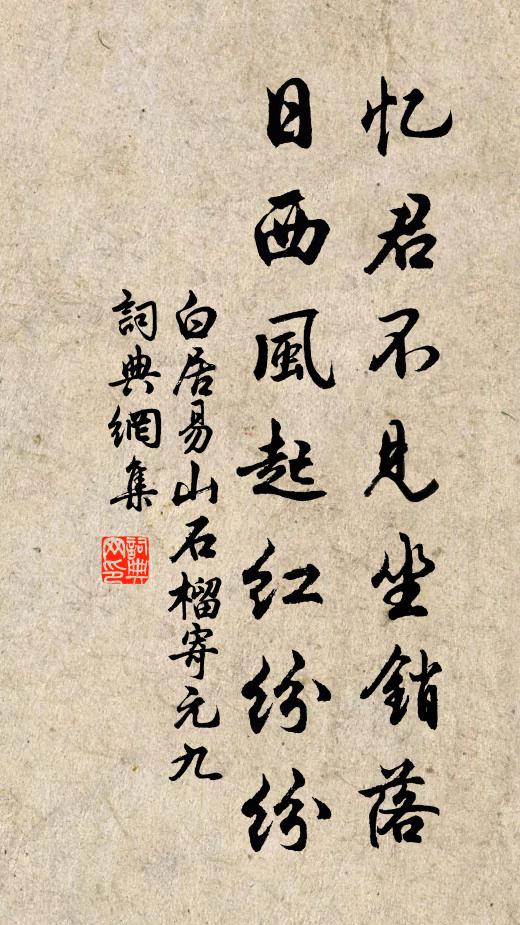 忆君不见坐銷落
日西風起红纷纷
白居易山石榴寄元九
詞典網集
詞典
网印